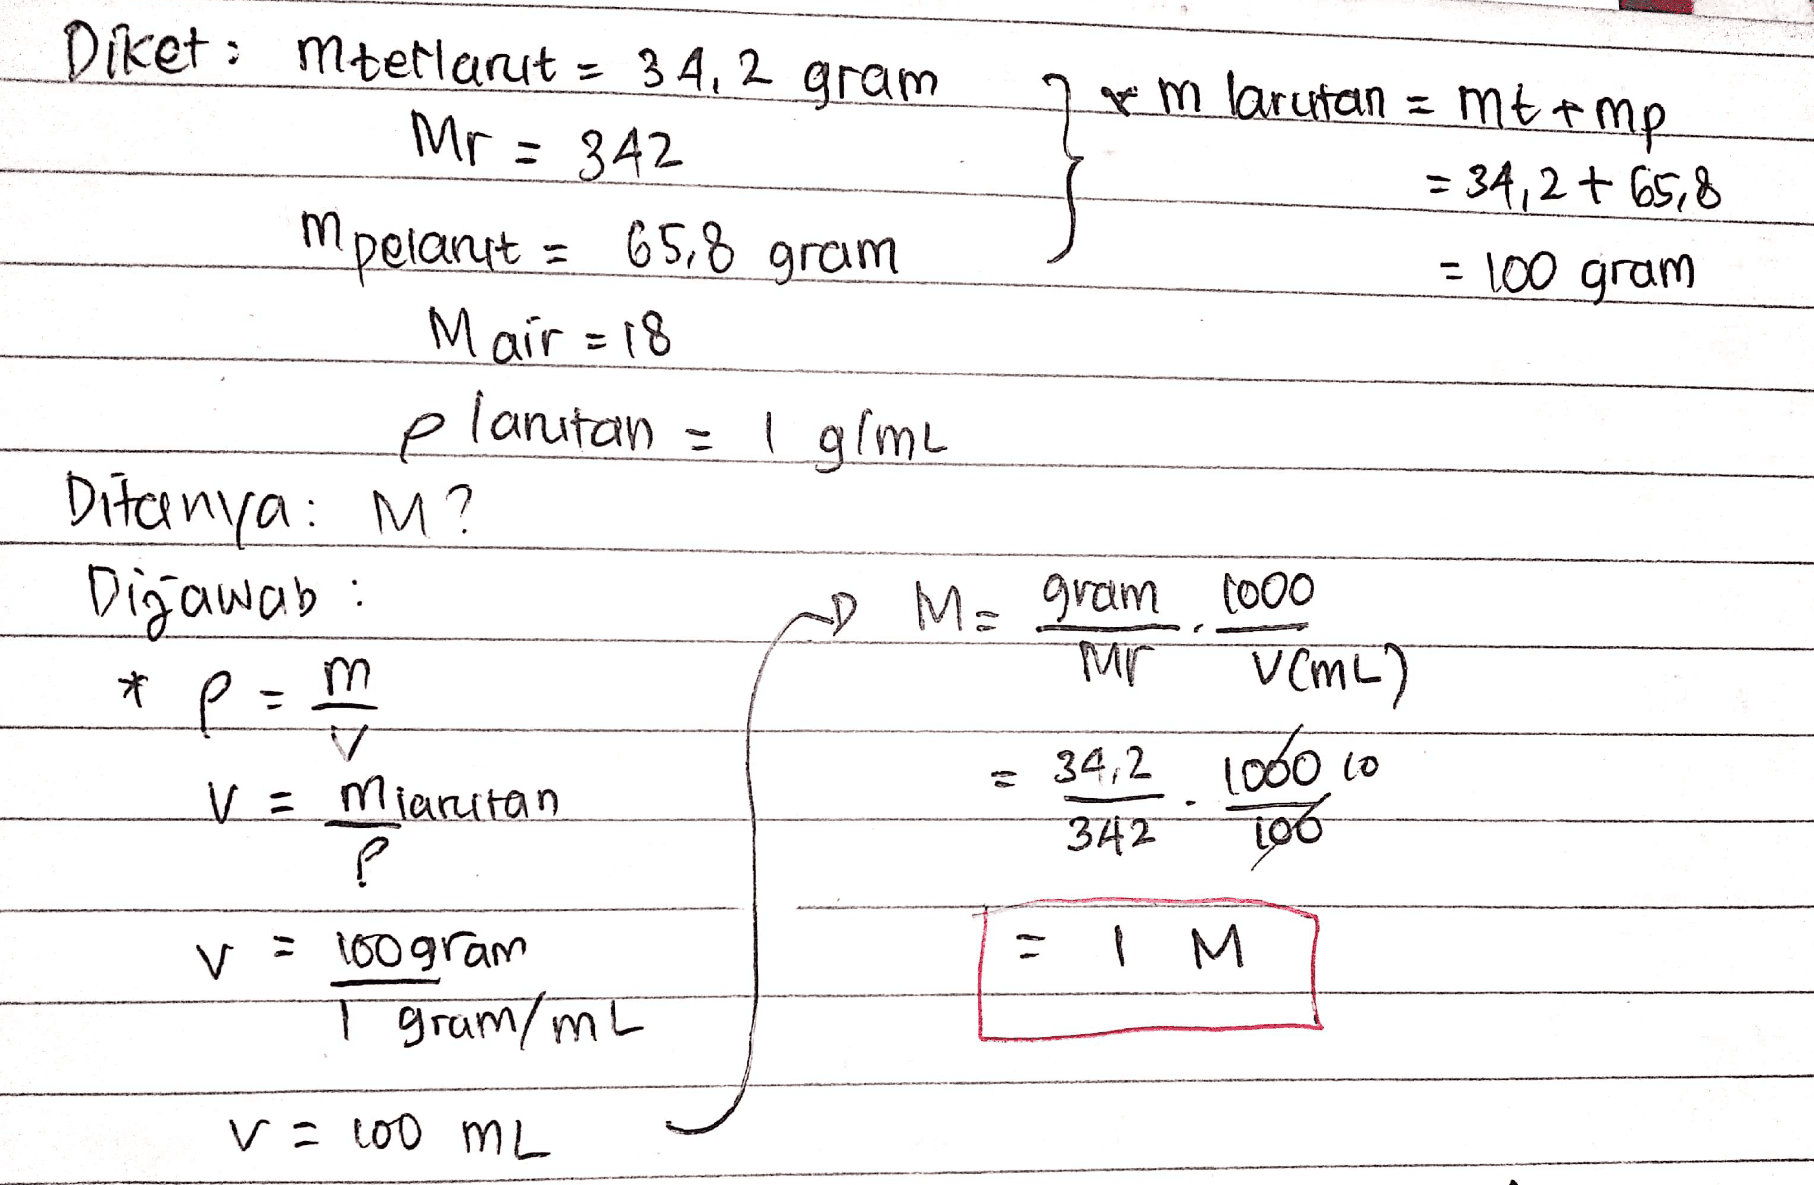 Diket: mterlarut = 34,2 gram
Mr = 342
mpelarut = 65,8 gram
M air = 18
ρ larutan = 1 g/mL
* m larutan = mt + mp
= 34,2 + 65,8
= 100 gram
Ditanya: M?
Dijawab:
* ρ = m/V
V = mlarutan/ρ
V = 100 gram/1 gram/mL
V = 100 mL
→ M = gram/Mr . 1000/V(mL)
= 34,2/342 . 1000/100 10
= 1 M